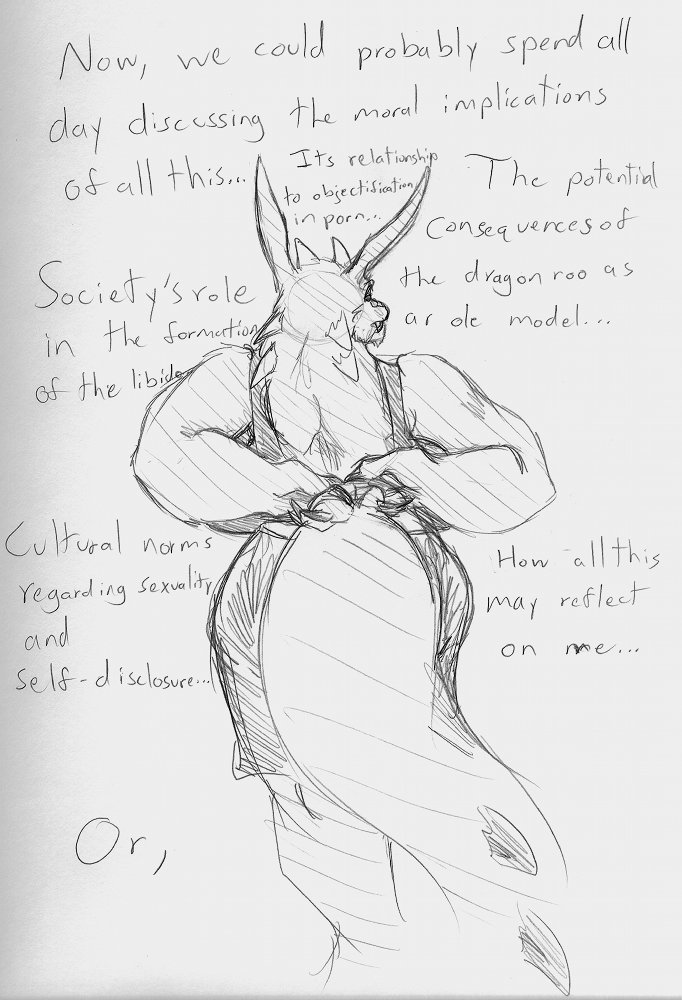 Now, we could probably spend all
day discussing the moral implications
of all this...
Its relationship
to objectification
in porn...
The potential
consequences of
the dragon roo as
a role model...
Society's role
in the formation
of the libido
Cultural norms
regarding sexuality
and
self-disclosure...
How all this
may reflect
on me...
Or,